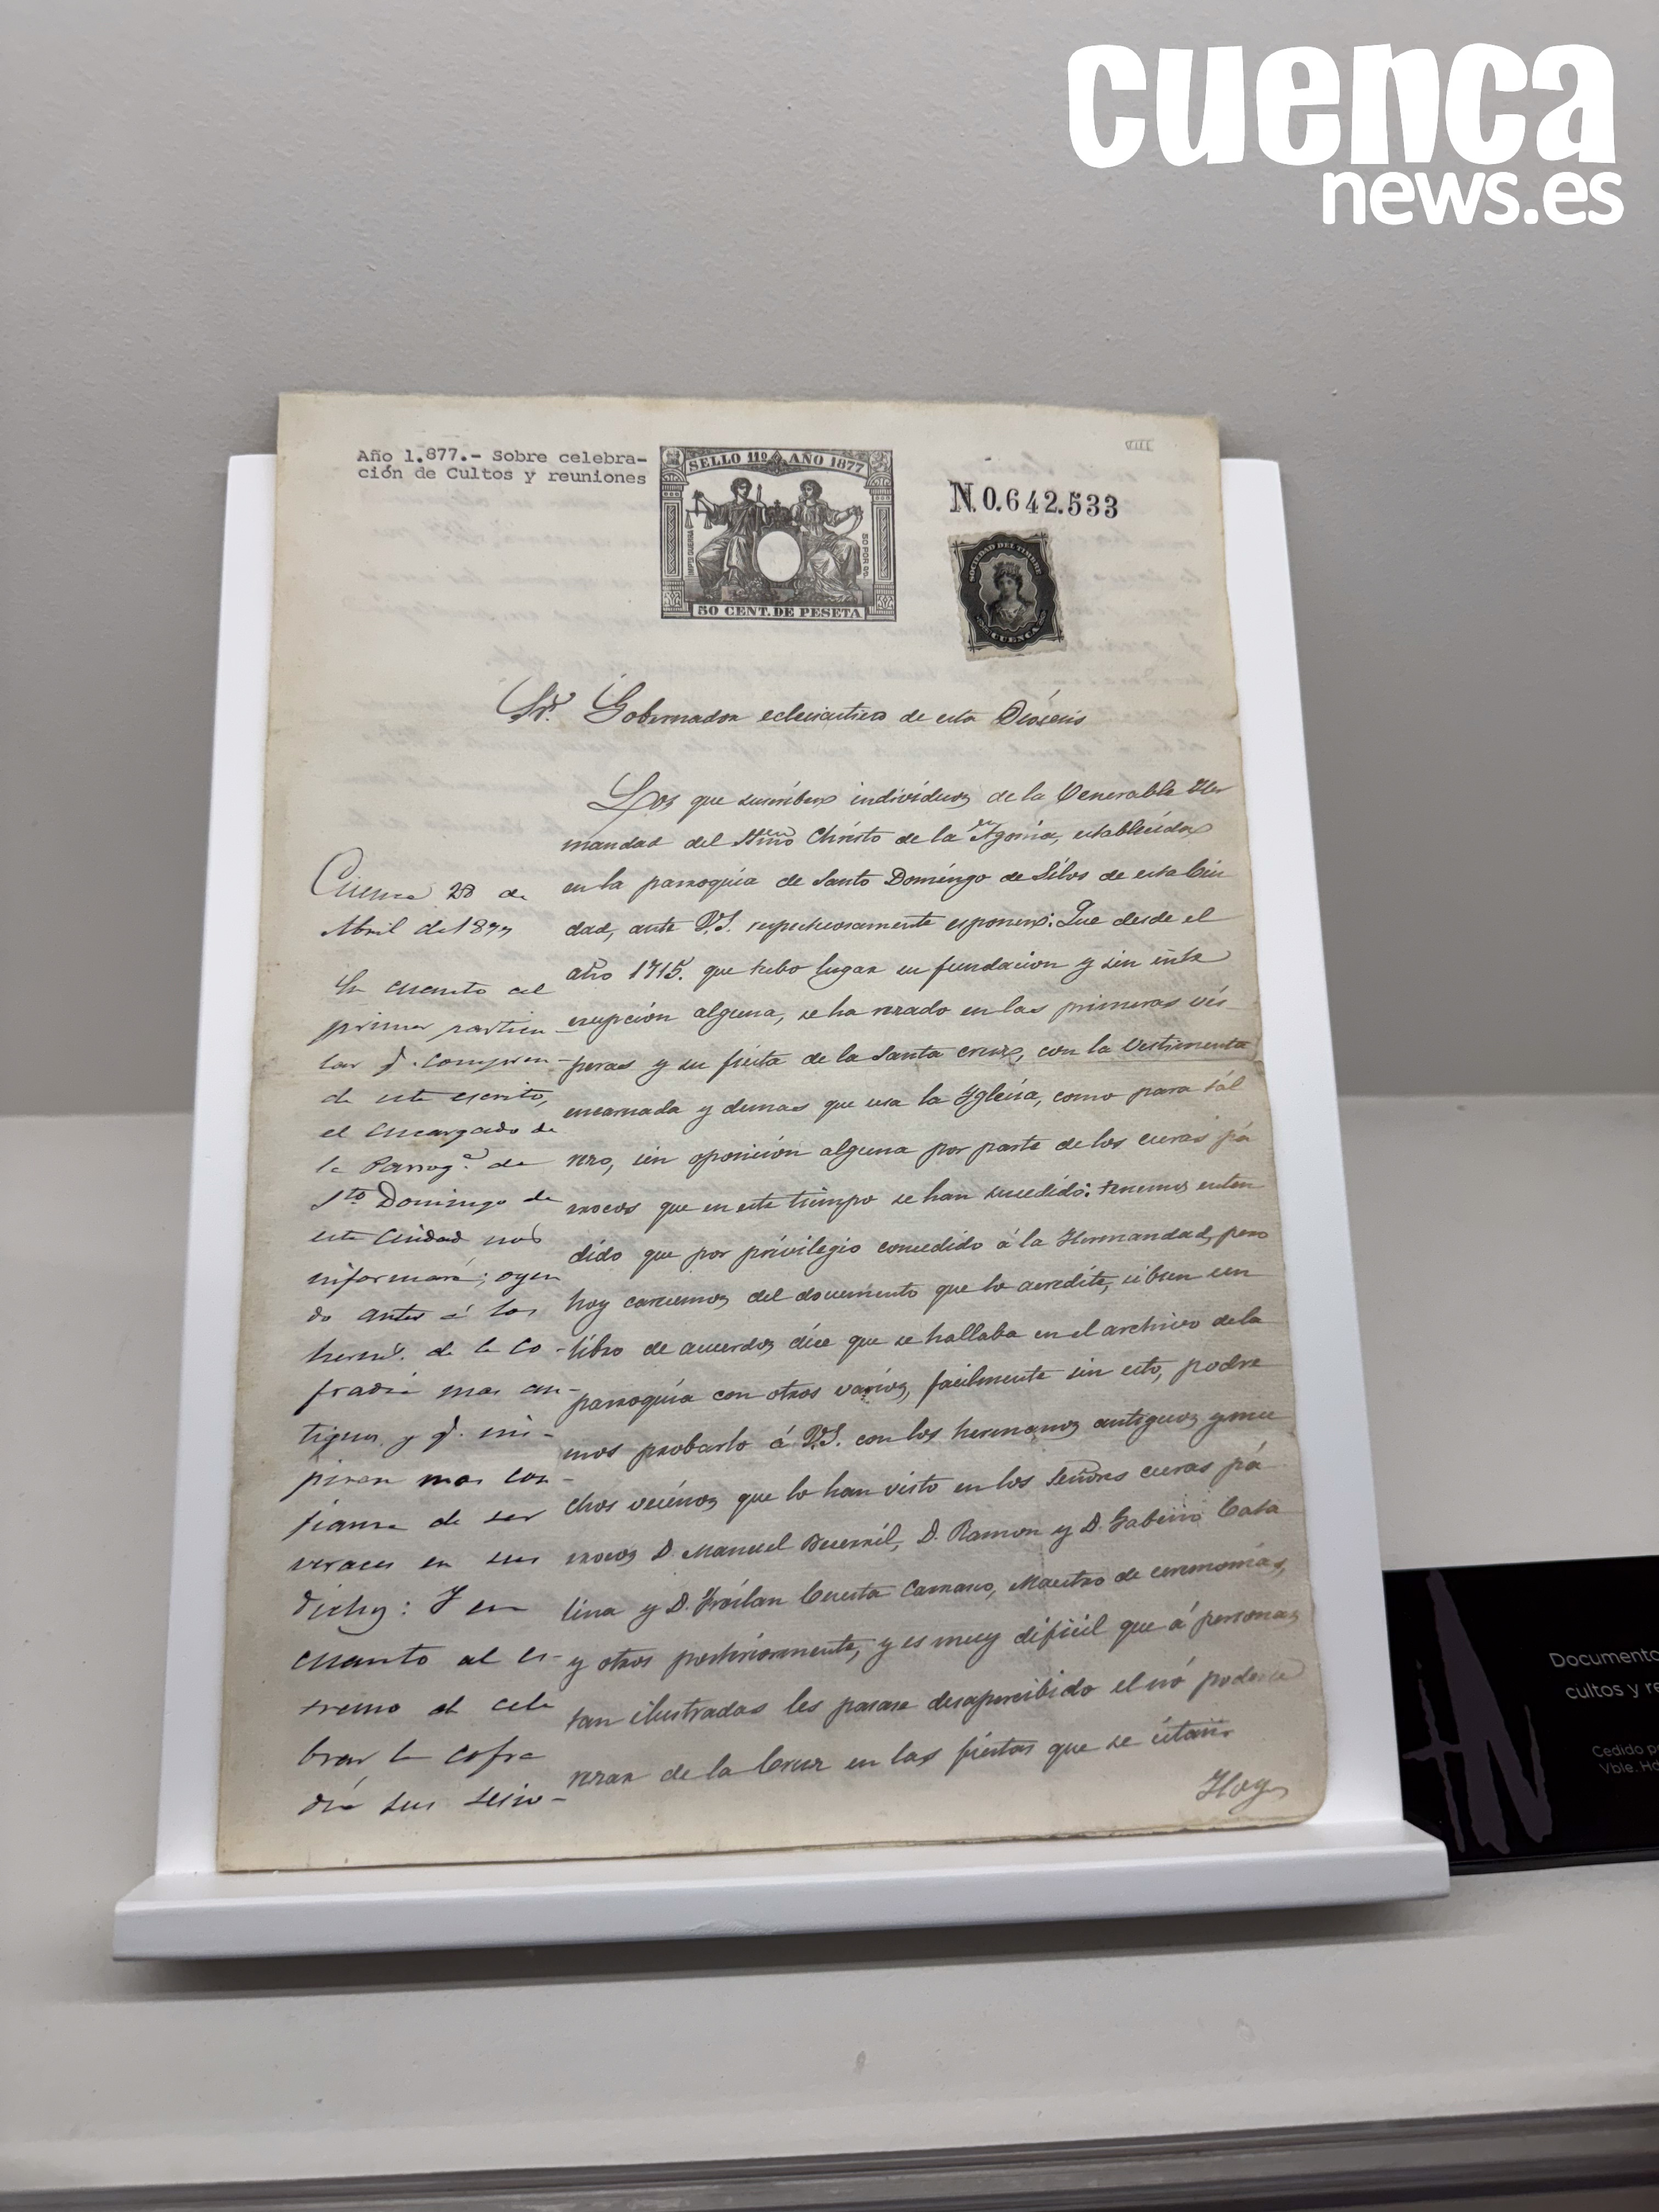 cuenca
news.es
Año 1.877.- Sobre celebra-
ción de Cultos y reuniones
SELLO 11º AÑO 1877
IMPTO GUERRA
50 POR %
50 CENT. DE PESETA
N. 0.642.533
SOCIEDAD DEL TIMBRE
CUENCA
Sr. Gobernador eclesiastico de esta Diócesis
Los que suscriben individuos de la Venerable Her
mandad del Stmo Christo de la Agonia, establecida
en la parroquia de Santo Domingo de Silos de esta Ciu
dad, ante V.S. respetuosamente esponen: Que desde el
año 1715. que tubo lugar su fundacion y sin inte
rrupción alguna, se ha rezado en las primeras vís
peras y su fiesta de la Santa cruz, con la Vestimenta
encarnada y demas que usa la Iglesia, como para tál
rezo, sin oposición alguna por parte de los curas pá
rrocos que en este tiempo se han sucedido: tenemos enten
dido que por privilegio concedido á la Hermandad, pero
hoy carecemos del documento que lo acredite, si bien un
libro de acuerdos dice que se hallaba en el archivo de la
parroquia con otros varios, facilmente sin esto, podre
mos probarlo á V.S. con los hermanos antiguos y mu
chos vecinos que lo han visto en los Señores curas pá
rrocos D. Manuel D. Ramon y D. Gabino Cata
lina y D. Froilan Cuesta Carrasco, Maestro de ceremonias,
y otros posteriormente, y es muy dificil que á personas
tan ilustradas les pasase desapercibido el nó poderse
rezar de la Cruz en las fiestas que se citan
Hoy
Cuenca 28 de
Abril de 1877
En cuanto al
primer particu
lar q. compren-
de este escrito,
el encargado de
la Parroqª de
Sto Domingo de
esta Ciudad nos
informará; oyen
do antes á los
herms. de la Co-
fradia mas an-
tiguos y q. ins-
piren mas con-
fianza de ser
veraces en sus
dichos: Y en
cuanto al es-
tremo de cele
brar la cofra
día sus
Documento
cultos y re
Cedido p
Vble. He